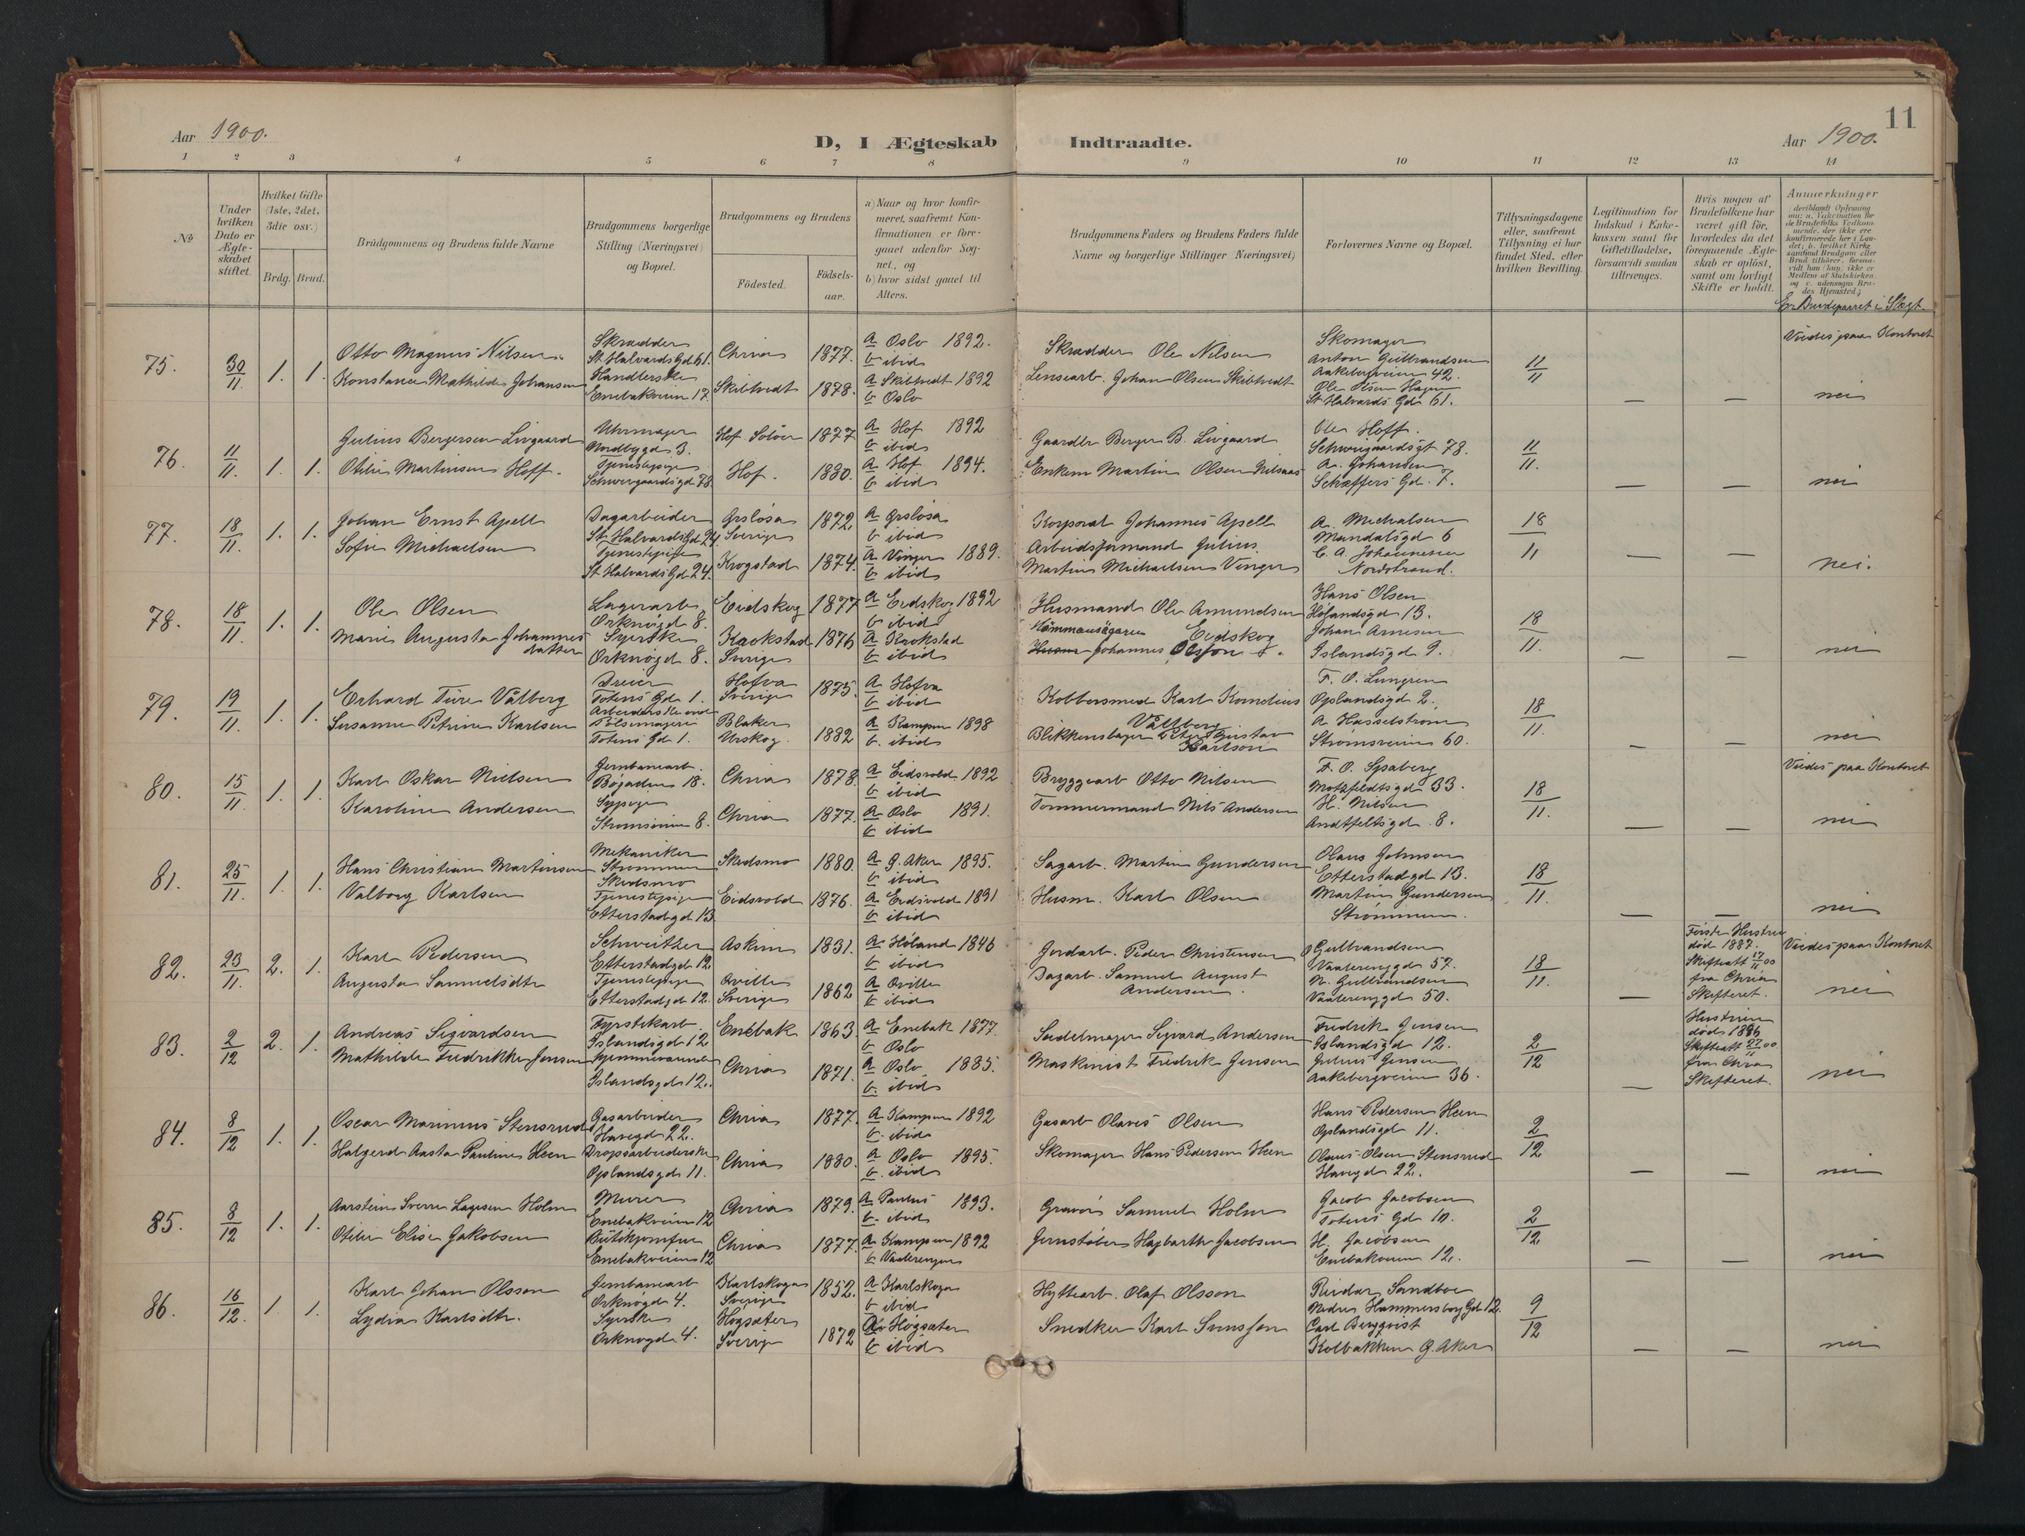 Aar 1900.
D, I Ægteskab Indtraadte.
11
Aar 1900.
1 2 3 4 5 6 7 8 9 10 11 12 13 14
No
Under hvilken Dato er Ægteskabet stiftet.
Hvilket Gifte (1ste, 2det, 3die osv.)
Brdg. Brud.
Brudgommens og Brudens fulde Navne
Brudgommens borgerlige Stilling (Næringsvei) og Bopæl.
Brudgommens og Brudens
Födested.
Födselsaar.
a) Naar og hvor konfirmeret, saafremt Konfirmationen er foregaaet udenfor Sognet, og
b) hvor sidst gaaet til Alters.
Brudgommens Faders og Brudens Faders fulde Navne og borgerlige Stillinger Næringsvei)
Forlovernes Navne og Bopæl.
Tillysningsdagene eller, saafremt Tillysning ei har fundet Sted, efter hvilken Bevilling.
Legitimation for Indskud i Enkekassen samt for Giftetilladelse, forsaavidt saadan tiltrænges.
Hvis nogen af Brudefolkene har været gift för, hvorledes da det foregaaende Ægteskab er oplöst, samt om lovligt Skifte er holdt.
Anmerkninger
Er Brudeparret i Slægt.
75. 30/11 1. 1.
Otto Magnus Nilsen
Konstance Mathilde Johansen
Skrædder
St. Halvards Gd 61.
Handlerske
Enebakveien 17.
Chria 1877.
Skibtvedt 1878.
a Oslo 1892.
b ibid
a Skibtvedt 1892
b Oslo
Skrædder Ole Nilsen
Lensearb. Johan Olsen Skibtvedt
Skomager
Anton Gulbrandsen
Aakebergveien 42.
Ole Olsen Hagen
St Halvards Gd 61.
11/11
—
—
Viedes paa Kontoret
nei
76. 11/11. 1. 1.
Julius Bergersen Livgaard
Otilie Martinsen Hoff.
Uhrmager
Nordbygd 3.
Tjenestepige
Schweigaardsgd 78.
Hof Solör 1877
Hof. 1880.
a Hof 1892
b ibid
a Hof 1894.
b ibid
Gaardbr Berger B. Livgaard
Enkem Martin Olsen Nilsaas
Ole Hoff.
Schweigaardsgt 78.
A. Johansen
Schæffers Gd. 7.
11/11.
—
—
nei
77. 18/11. 1. 1.
Johan Ernst Apell
Sofie Michaelsen
Dagarbeider
St. Halvards Gd 24.
Tjenestepige
St Halvards Gd 24.
Grslösa
Sverige 1872.
Krogstad 1874.
a Grslösa
b ibid
a Vinger 1889.
b ibid
Korporal Johannes Apell
Arbeidsformand Julius
Martin Michaelsen Vinger
A. Michalsen
Mandalsgd 6
C. A. Johannesen
Nordstrand.
18/11
—
—
nei.
78. 18/11. 1. 1.
Ole Olsen
Marie Augusta Johannesdatter
Lagerarb.
Orknögd 8.
Syerske
Orknögd 8.
Eidskog 1877
Krokstad
Sverige 1876
a Eidskog 1892
b ibid
a Krokstad
b ibid
Husmand Ole Amundsen
Eidskog
Hemmansägaren
Johannes Olsson
Hans Olsen
Hölandsgd 13.
Johan Arnesen
Islandsgd 9.
18/11.
—
—
nei
79. 19/11. 1. 1.
Erhard Ture Vålberg
Susanne Petrine Karlsen
Dreier
Totens Gd. 1.
Totens Gd 1.
Hofva
Sverige 1875.
Blaker
Urskog. 1882
a Hofva
b ibid
a Kampen 1898
b. ibid
Kobbersmed Karl Kornelius
Vålberg
Blikkenslager Peter Gustav
Karlson
F. O. Lungren
Oplandsgd 2.
A Hasselstrøm
Strømsveien 60.
18/11.
—
—
nei
80. 15/11. 1. 1.
Karl Oskar Nielsen
Karoline Andersen
Jernbanearb.
Bögaden 18.
Sypige
Strømsveien 8.
Chria 1878.
Chria 1877.
a Eidsvold 1892
b ibid
a Oslo 1891.
b ibid
Bryggearb Otto Nilsen
Tømmermand Nils Andersen
F. O. Spaberg
Motzfeldtsgd 33.
H. Nilsen
18/11.
—
—
Viedes paa Kontoret
nei
81. 25/11. 1. 1.
Hans Christian Martinsen
Valborg Karlsen
Mekaniker
Strømmen
Skedsmo
Tjenestepige
Etterstadgd 13
Skedsmo 1880.
Eidsvold 1876.
a G. Aker 1895.
b ibid
a Eidsvold 1891
b ibid
Sagarb. Martin Gundersen
Husm. Karl Olsen
Olaus Johnsen
Etterstadgd 13.
Martin Gundersen
Strømmen.
18/11.
—
—
nei
82. 23/11. 2. 1.
Karl Pedersen
Augusta Samuelsdtr
Schweitzer
Etterstadgd 12.
Tjenestepige
Etterstadgd 12.
Askim 1831.
Qville
Sverige 1862
a Höland 1846
b ibid
a Qville
b ibid
Jordarb. Peder Christensen
Dagarb. Samuel August
Andersen.
Gulbrandsen
Vaalerenggd 57.
N. Gulbrandsen
Vaalerenggd 50.
18/11.
—
Første Hustru
død 1887.
Skifteatt 17/11 00
fra Chria
Skifteret.
Viedes paa Kontoret
nei
83. 2/12 2. 1.
Andreas Sigvardsen
Mathilde Fredrikke Jensen
Fyrstikarb.
Islandsgd 12
Hjemmeværende
Islandsgd 12.
Enebak 1863.
Chria 1871.
a Enebak 1877
b Oslo
a Oslo 1885.
b ibid
Sadelmager Sigvard Andersen
Maskinist Fredrik Jensen
Fredrik Jensen
Islandsgd 12.
Julius Jensen
Aakebergveien 36.
2/12
—
Hustruen
død 1896
Skifteatt 27/11 00
fra Chria
Skifteret.
nei
84. 8/12 1. 1.
Oscar Marinius Stensrud
Halgerd Aasta Pauline Heen
Gasarbeider
Havegd 22.
Dropsarbeiderske
Oplandsgd 11.
Chria 1877.
Chria 1880.
a Kampen 1892
b. ibid
a Oslo 1895.
b. ibid
Gasarb Olavis Olsen
Skomager Hans Pedersen Heen
Hans Pedersen Heen
Oplandsgd 11.
Olaus Olsen Stensrud
Havegd 22.
2/12
—
—
nei
85. 8/12 1. 1.
Aarstein Sverre Lagesen Holm
Otilie Elise Jakobsen
Murer
Enebakveien 12
Butikjomfru
Enebakveien 12
Chria 1879.
Chria 1877.
a Paulus 1893.
b. ibid
a Kampen 1892
b Vaalerengen
Gravör Samuel Holm
Jernstøber Hagbarth Jacobsen
Jacob Jacobsen
Totens Gd 10.
H. Jacobsen
Enebakveien 12.
2/12
—
—
nei
86. 16/12. 1. 1.
Karl Johan Olsson
Lydia Karlsdtr.
Jernbanearb
Orknögd 4.
Syerske
Orknögd 4.
Karlskoga
Sverige 1852.
Högsäter
Sverige 1872
a Karlskoga
b ibid
a Högsäter
b ibid
Hyttearb. Olaf Olsson
Snedker Karl Svensson
Reidar Sandboe
Nedre Hammersborg Gd 12.
Carl Bergqvist
Kolbakken G. Aker
9/12
—
—
nei